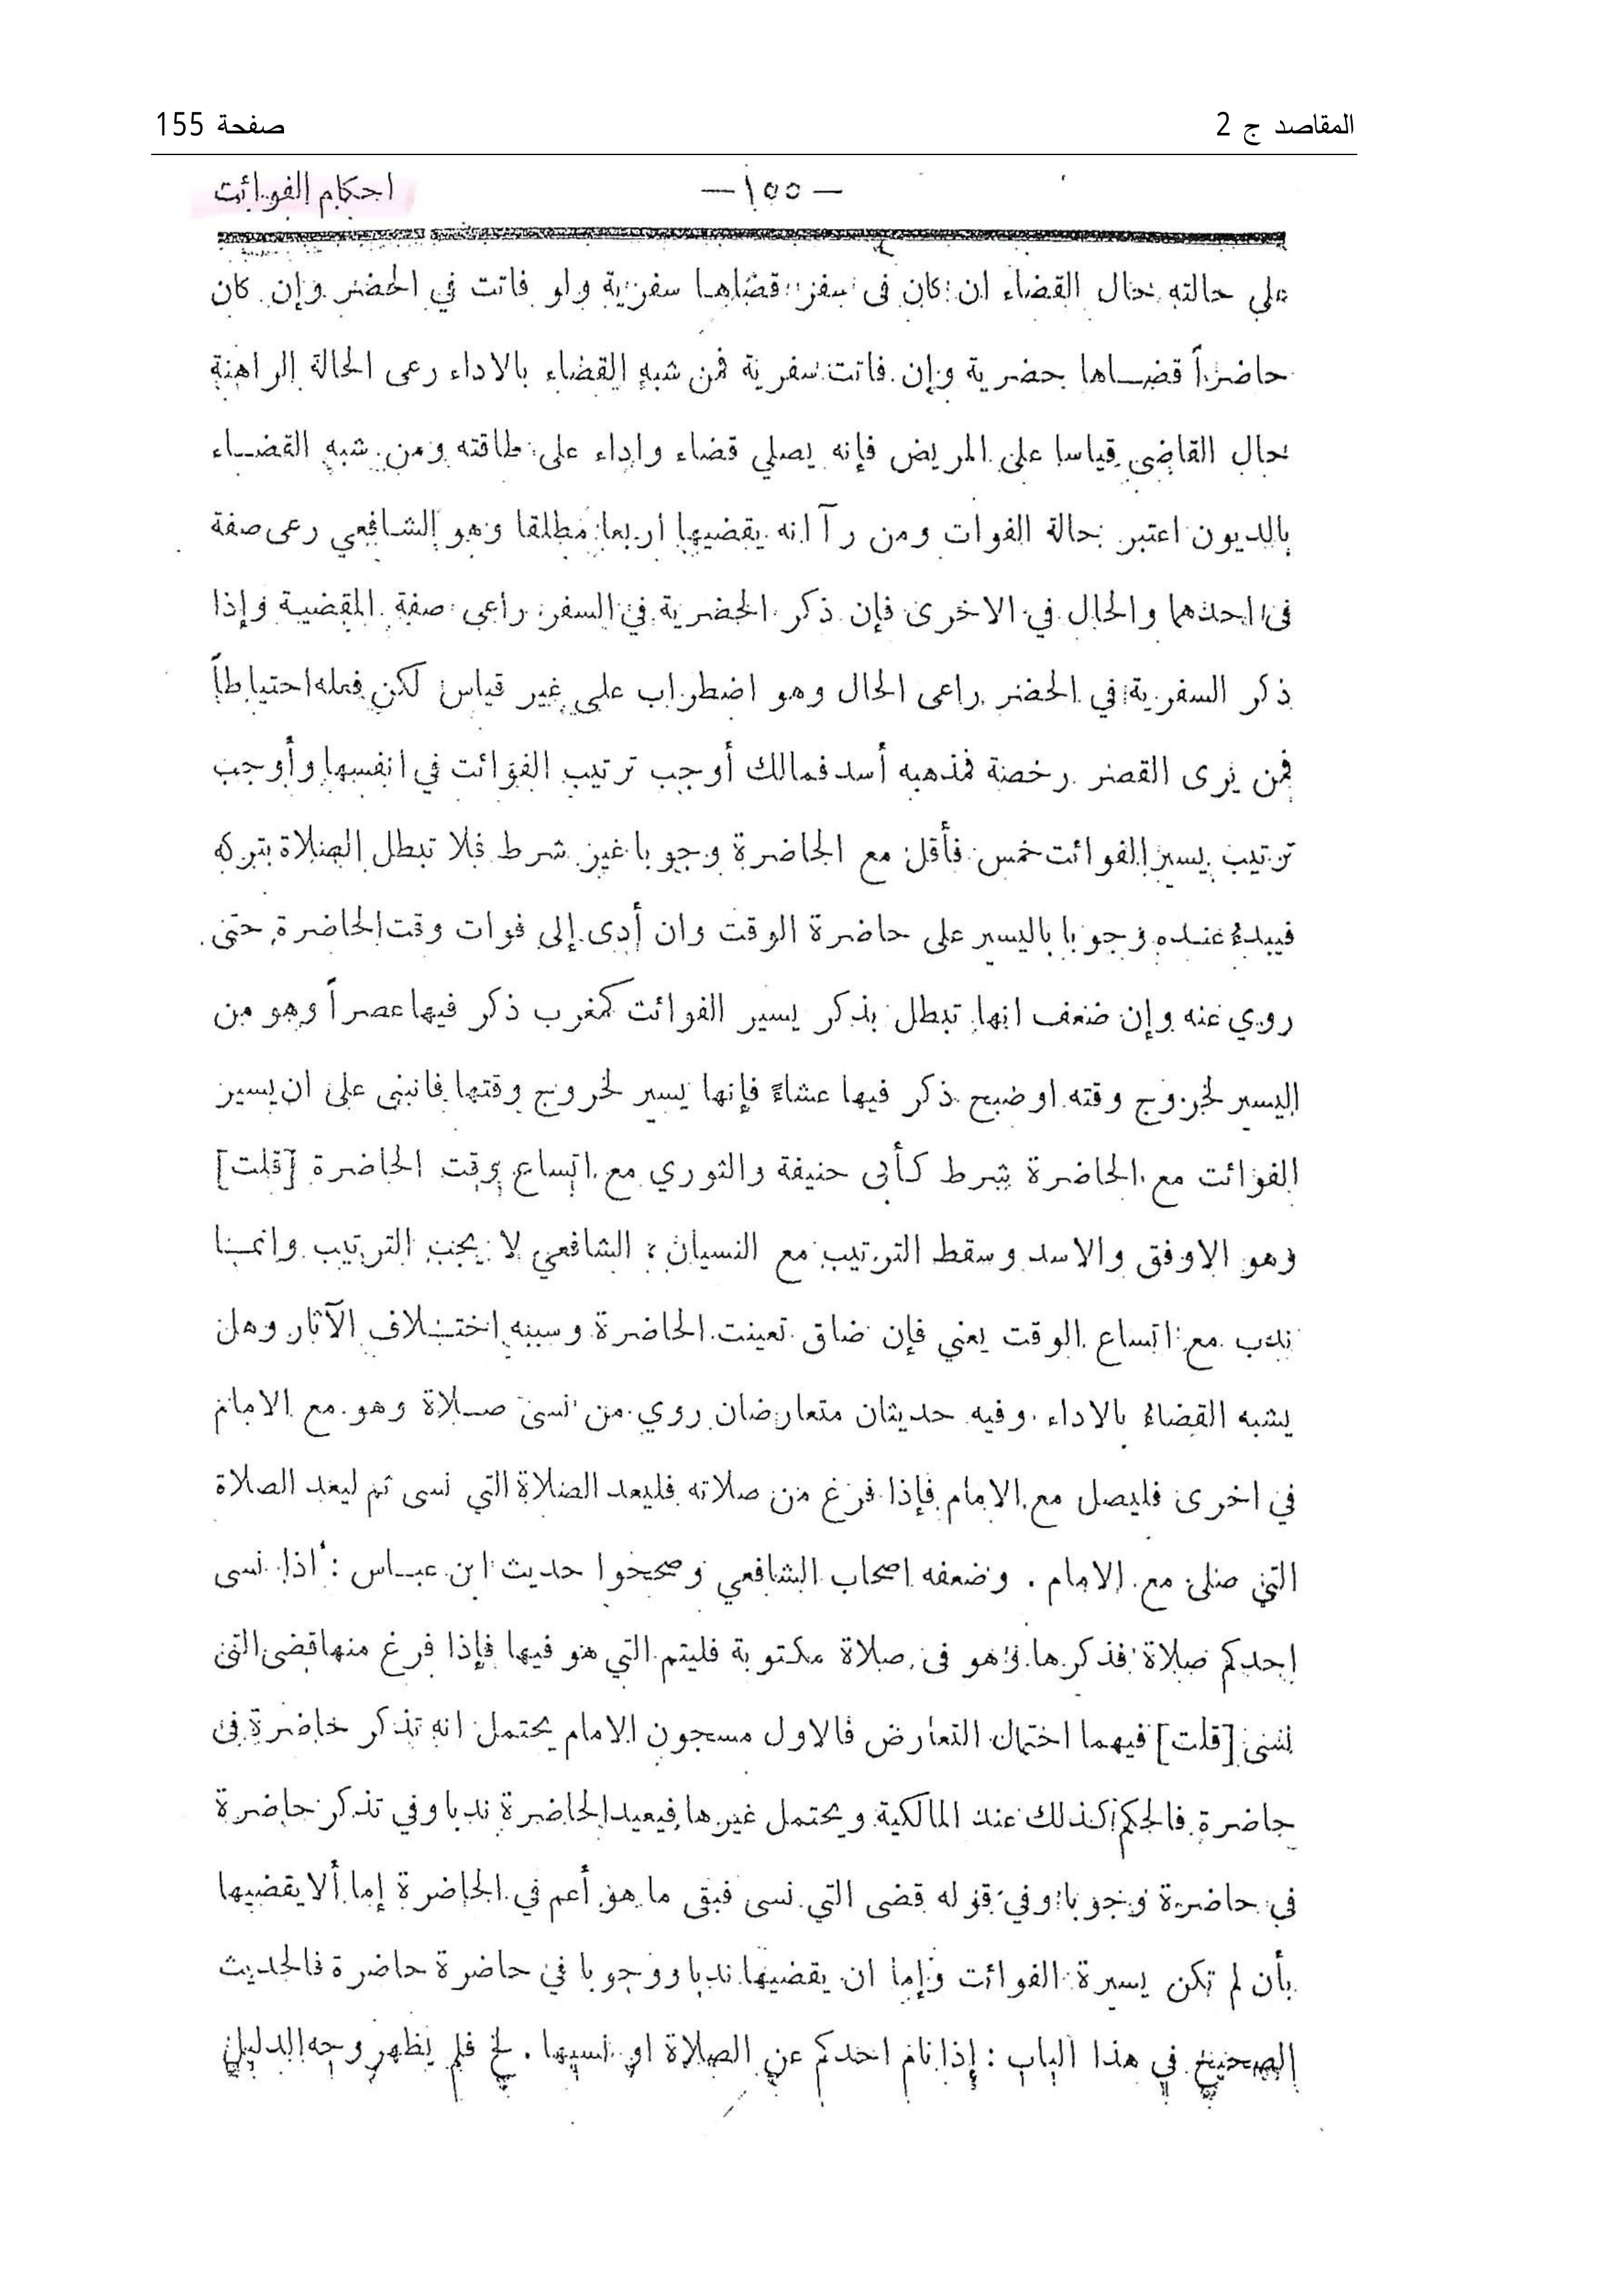 المقاصد ج 2
صفحة 155
— ١٥٥ —
احكام الفوائت
على حالته حال القضاء ان كان فى سفر قضاها سفرية ولو فاتت في الحضر وإن كان
حاضراً قضاها حضرية وإن فاتت سفرية فمن شبه القضاء بالاداء رعى الحالة الراهنة
حال القاضى قياسا على المريض فإنه يصلي قضاء واداء على طاقته ومن شبه القضاء
بالديون اعتبر حالة الفوات ومن رآ انه يقضيها اربعا مطلقا وهو الشافعي رعى صفة
فى احدهما والحال في الاخرى فإن ذكر الحضرية في السفر راعى صفة المقضية وإذا
ذكر السفرية في الحضر راعى الحال وهو اضطراب على غير قياس لكن فعله احتياطاً
فمن يرى القصر رخصة فمذهبه أسد فمالك أوجب ترتيب الفوائت في انفسها وأوجب
ترتيب يسير الفوائت خمس فأقل مع الحاضرة وجوبا غير شرط فلا تبطل الصلاة بتركه
فيبدء عنده وجوبا باليسير على حاضرة الوقت وان أدى إلى فوات وقت الحاضرة حتى
روي عنه وإن ضعف انها تبطل بذكر يسير الفوائت كمغرب ذكر فيها عصراً وهو من
اليسير لخروج وقته او صبح ذكر فيها عشاءً فإنها يسير لخروج وقتها فانبنى على ان يسير
الفوائت مع الحاضرة شرط كأبى حنيفة والثوري مع اتساع وقت الحاضرة [قلت]
وهو الاوفق والاسد وسقط الترتيب مع النسيان ؛ الشافعي لا يجب الترتيب وانما
ندب مع اتساع الوقت يعني فإن ضاق تعينت الحاضرة وسببه اختلاف الآثار وهل
يشبه القضاء بالاداء وفيه حديثان متعارضان روي من نسى صلاة وهو مع الامام
في اخرى فليصل مع الامام فإذا فرغ من صلاته فليعد الصلاة التي نسى ثم ليعد الصلاة
التي صلى مع الامام . وضعفه اصحاب الشافعي وصححوا حديث ابن عباس : اذا نسى
احدكم صلاة فذكرها وهو فى صلاة مكتوبة فليتم التي هو فيها فإذا فرغ منها قضى التى
نسى [قلت] فيهما احتمال التعارض فالاول مسجون الامام يحتمل انه تذكر حاضرة فى
حاضرة فالحكم كذلك عند المالكية ويحتمل غيرها فيعيد الحاضرة ندبا وفي تذكر حاضرة
في حاضرة وجوبا وفي قوله قضى التي نسى فبقى ما هو أعم في الحاضرة إما ألا يقضيها
بأن لم تكن يسيرة الفوائت وإما ان يقضيها ندبا ووجوبا في حاضرة حاضرة فالحديث
الصحيح في هذا الباب : إذا نام احدكم عن الصلاة او نسيها . لخ فلم يظهر وجه الدليل